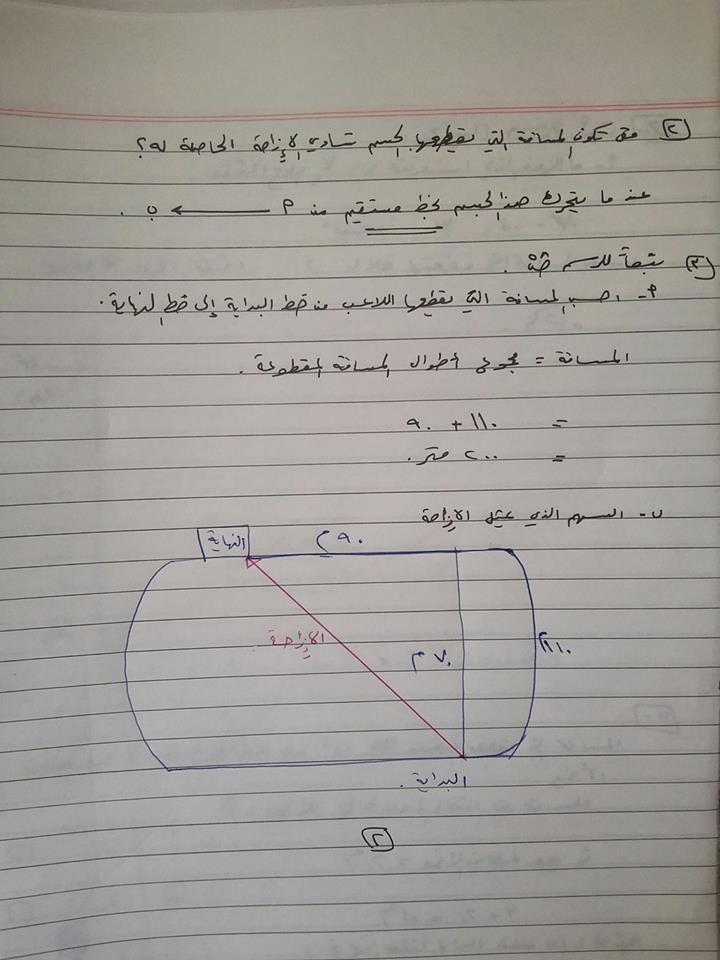 ٢ متى تكون المسافة التي يقطعها الجسم تساوي الإزاحة الحاصلة له؟
عند ما يتحرك هذا الجسم بخط مستقيم من P ← ب .
٣ تبعاً للرسم
P- احسب المسافة التي يقطعها اللاعب من خط البداية إلى خط النهاية .
المسافة = مجموع أطوال المسافة المقطوعة .
= ١١٠ + ٩٠
= ٢٠٠ متر .
ب- السهم الذي يمثل الإزاحة
النهاية
٩٠ م
الإزاحة
٧٠ م
١١٠ م
البداية .
٢